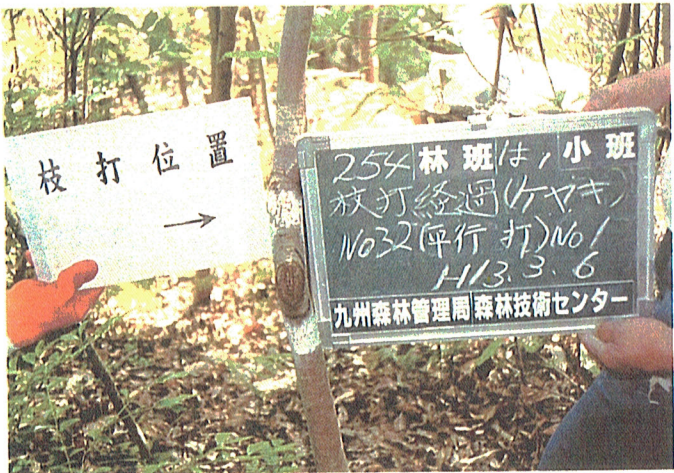 枝打位置
→
254林班は1小班
枝打経過(ケヤキ)
No32(平行打)No1
H13.3.6
九州森林管理局森林技術センター